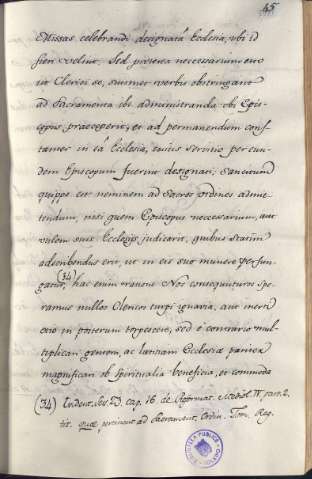 45
Missas celebrandi designatâ Ecclesia, ubi id
fieri voluit. Sed præterea necessarium erit
ut Clerici se, suismet verbis obstringant
ad Sacramenta ibi administranda ubi Epis-
copus præceperit, et ad permanendum cons-
tanter in eâ Ecclesiâ, cuius servitio per eun-
dem Episcopum fuerint designati; Sancitum
quippe est neminem ad Sacros Ordines admit-
tendum, nisi quem Episcopus necessarium, aut
utilem suis Ecclesijs judicarit, quibus statim
adscribendus erit, ut in eis suo munere perfun-
gatur, (34) hac enim ratione Nos consequuturos spe-
ramus nullos Clericos turpi ignavia, aut inerti
otio in posterum torpescere, sed è contrario mul-
tiplicari gentem, ac lætitiam Ecclesiæ pariter
magnificari ob spiritualia beneficia, et commoda
(34) Trident. Ses. 23. cap. 16 de Reformat.
tit. quæ pertinent ad Sacrament. Ordin. Tom. Reg.